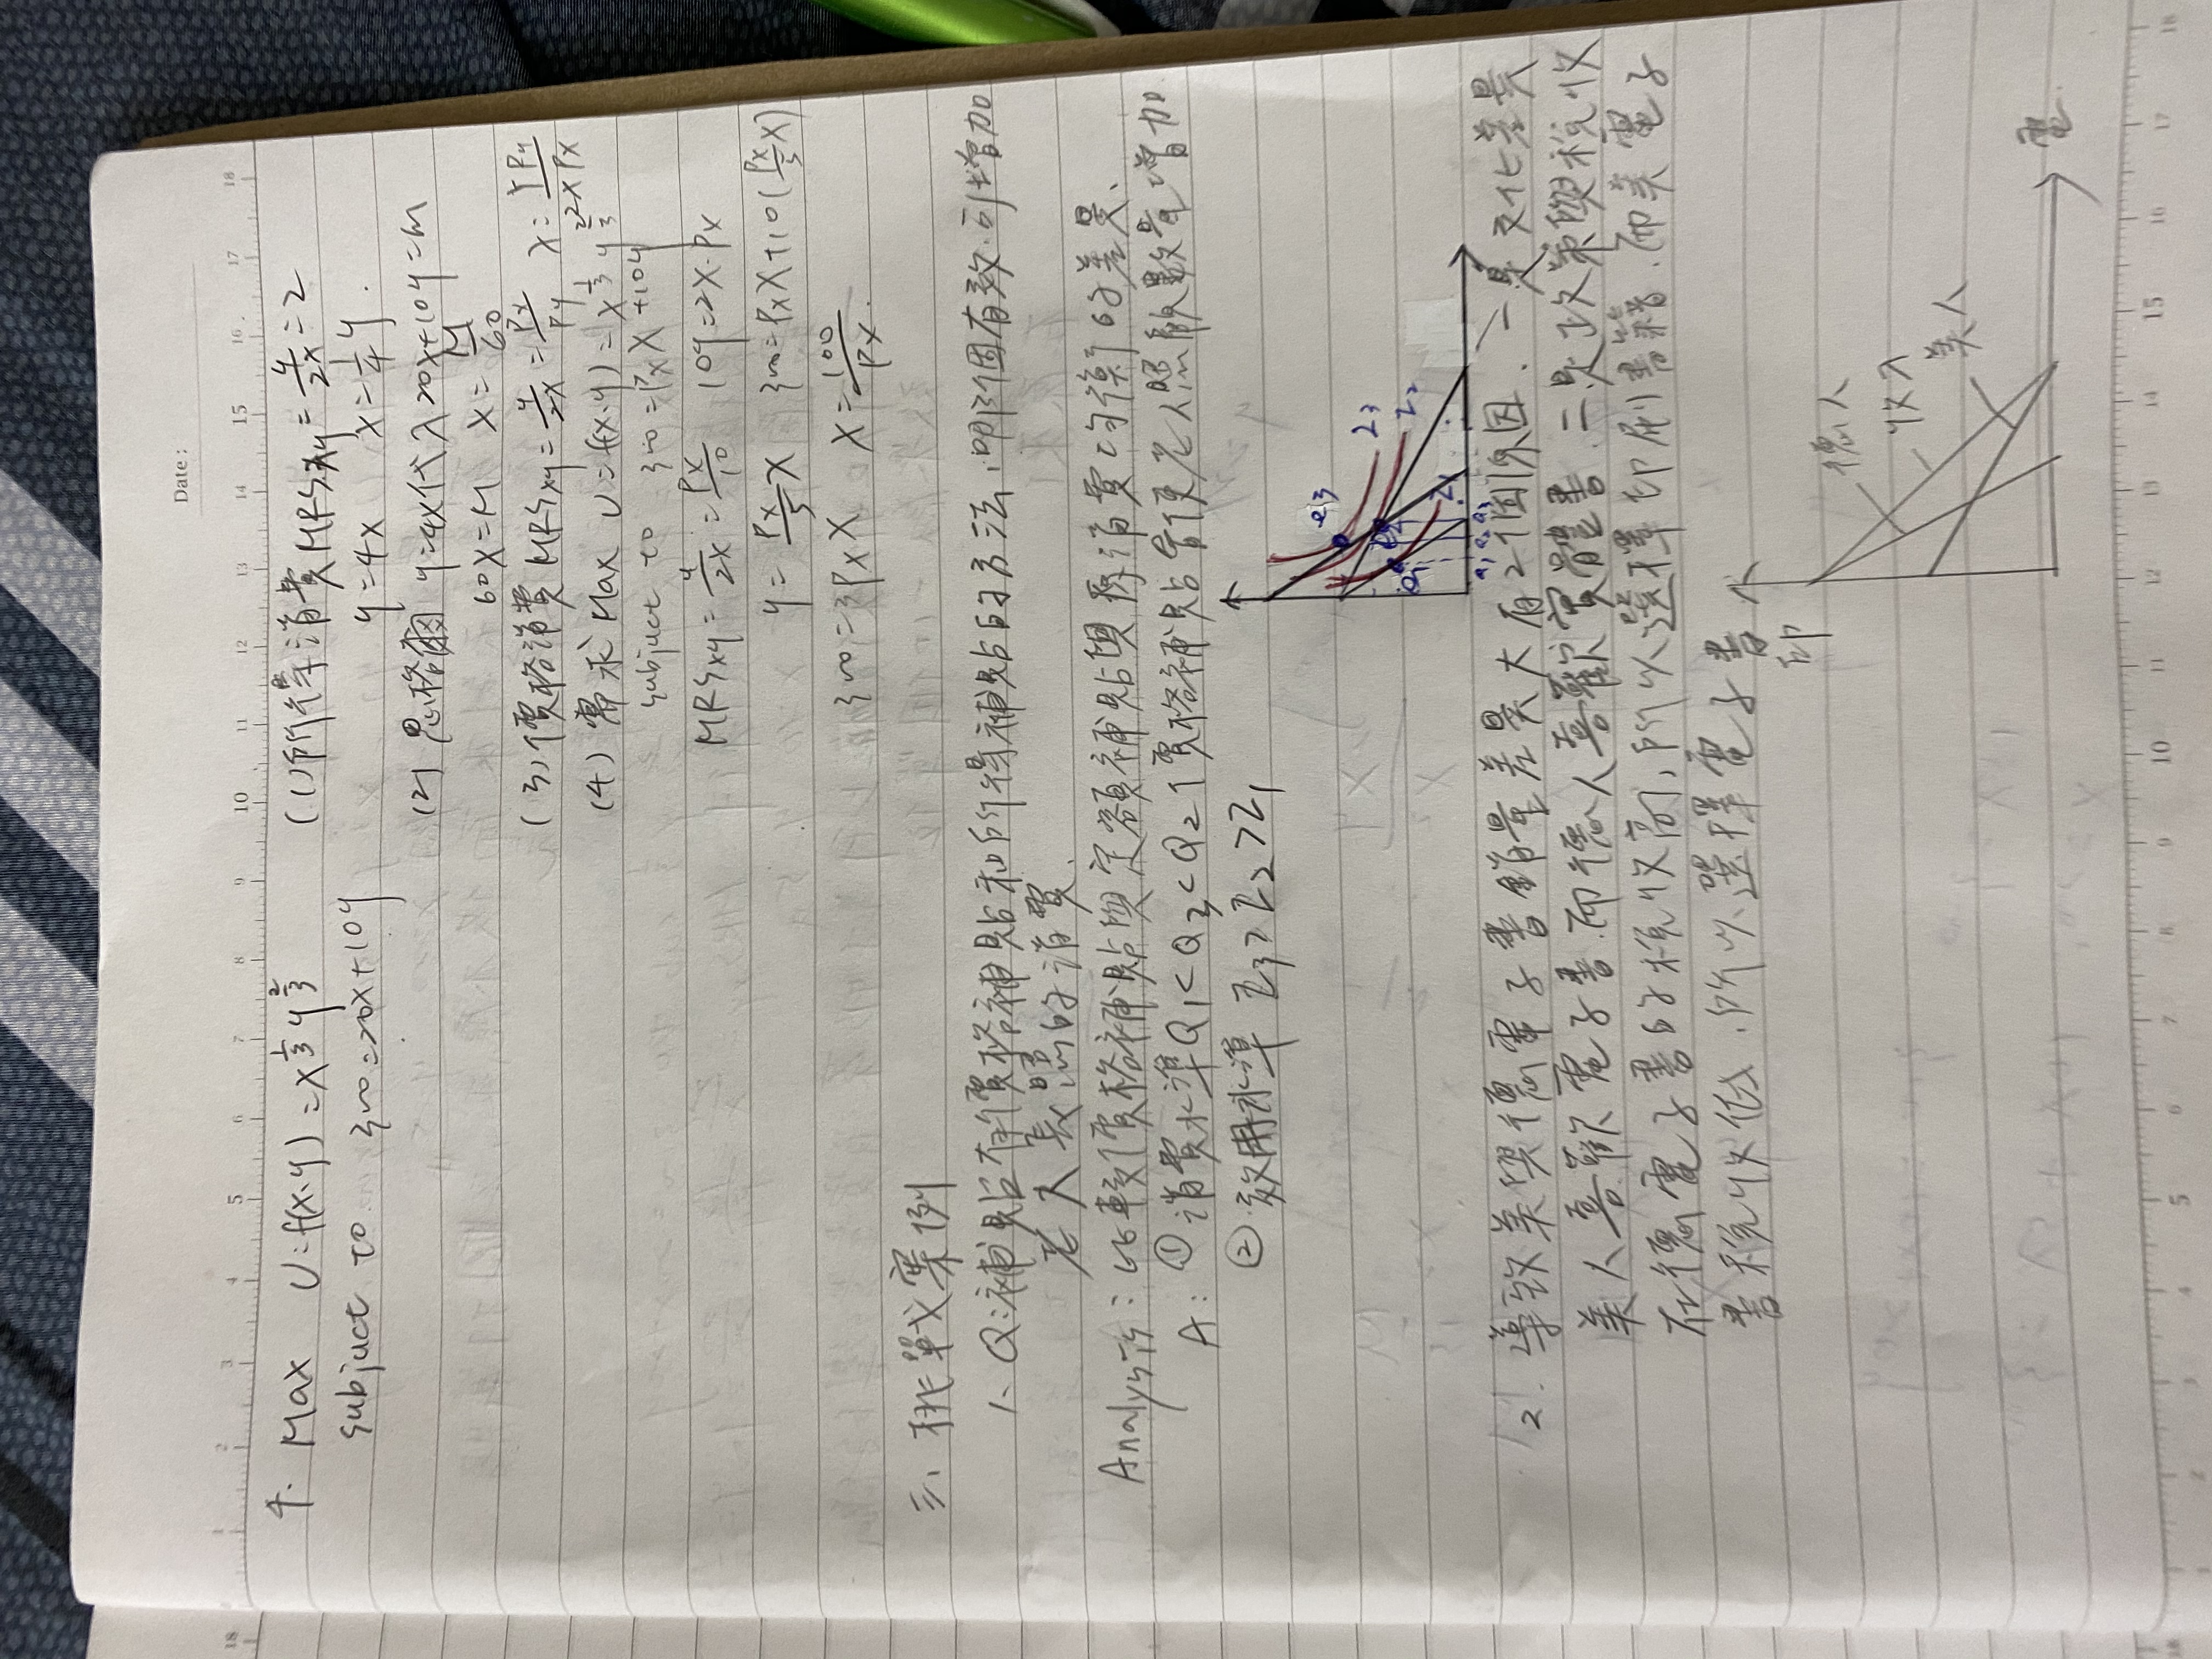 Date :
4. Max U=f(x.y) = x^{1/3} y^{2/3}
subjuct to 300=20x+10y
(1)所得消費MRSxy=y/2x=2
y=4x x=1/4y.
(2) 恩格爾 y=4x代入20x+10y=m
60x=M x=M/60
(3)價格消費MRSxy=y/2x=Px/Py
(4) 需求 Max U=f(x.y)=x^{1/3} y^{2/3}
subjuct to 300=PxX+10y
MRSxy=y/2x=Px/10 10y=2x.Px
y=Px/5 X 300=PxX+10(Px/5 X)
300=3PxX X=100/Px.
三、挑戰案例
1、Q:補貼有價格補貼和所得補貼的方法,哪個有效.可增加
老人長照的消費.
Analysis:比較價格補貼與定額補貼與原消費均衡的差異、
A: ①消費水準Q1<Q3<Q2 價格補貼會使老人照顧數量增加
②效用水準 Z3>Z2>Z1
e3
Z3
e2
Z2
e1
Z1
2. 導致美與德電子書銷量差異大有2個原因.一是文化差異
美人喜歡電子書.而德人喜歡實體書.二是政策與稅收
在德電子書的稅收高,所以選擇印刷書籍.而美電子
書稅收低.所以選擇電子書
印
德人
收入
美人
電.